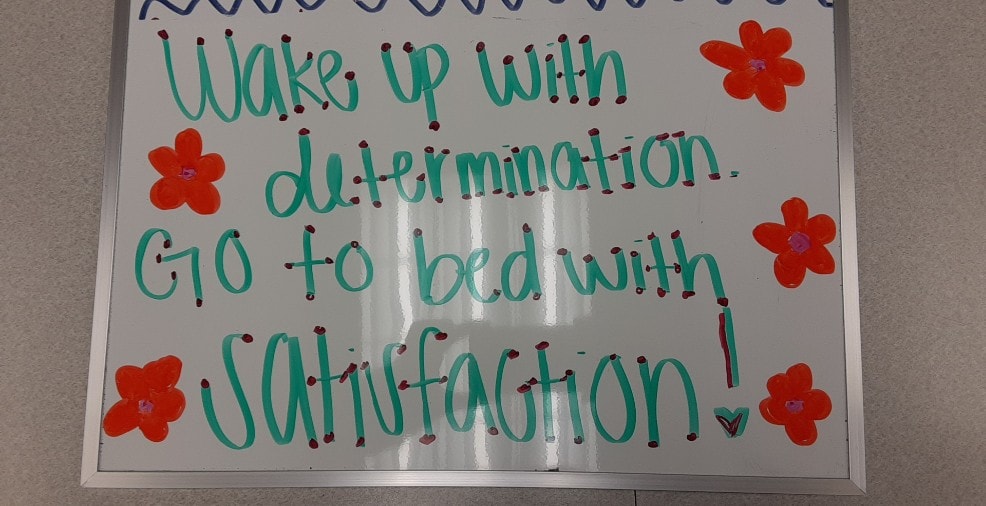 Wake up with
determination.
Go to bed with
satisfaction!